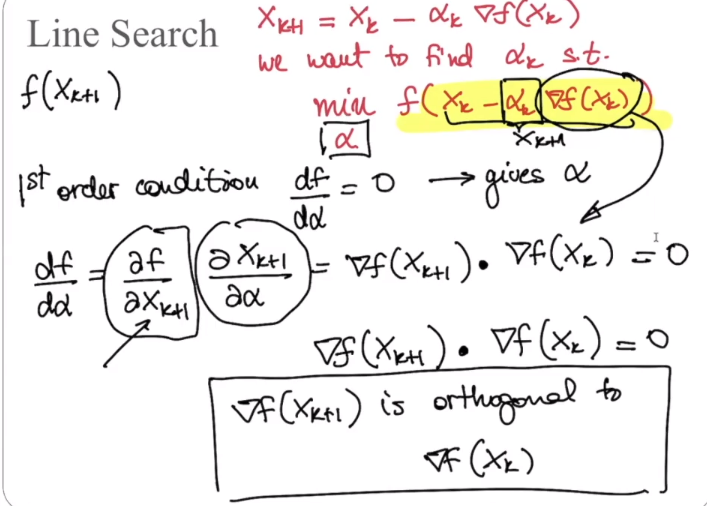 Line Search
x_{k+1} = x_k − α_k ∇f(x_k)
we want to find α_k s.t.
f(x_{k+1})
min f(x_k − α_k ∇f(x_k))
α
x_{k+1}
1st order condition df/dα = 0 → gives α
df/dα = ∂f/∂x_{k+1} ∂x_{k+1}/∂α = ∇f(x_{k+1}) • ∇f(x_k) = 0
∇f(x_{k+1}) • ∇f(x_k) = 0
∇f(x_{k+1}) is orthogonal to
∇f(x_k)